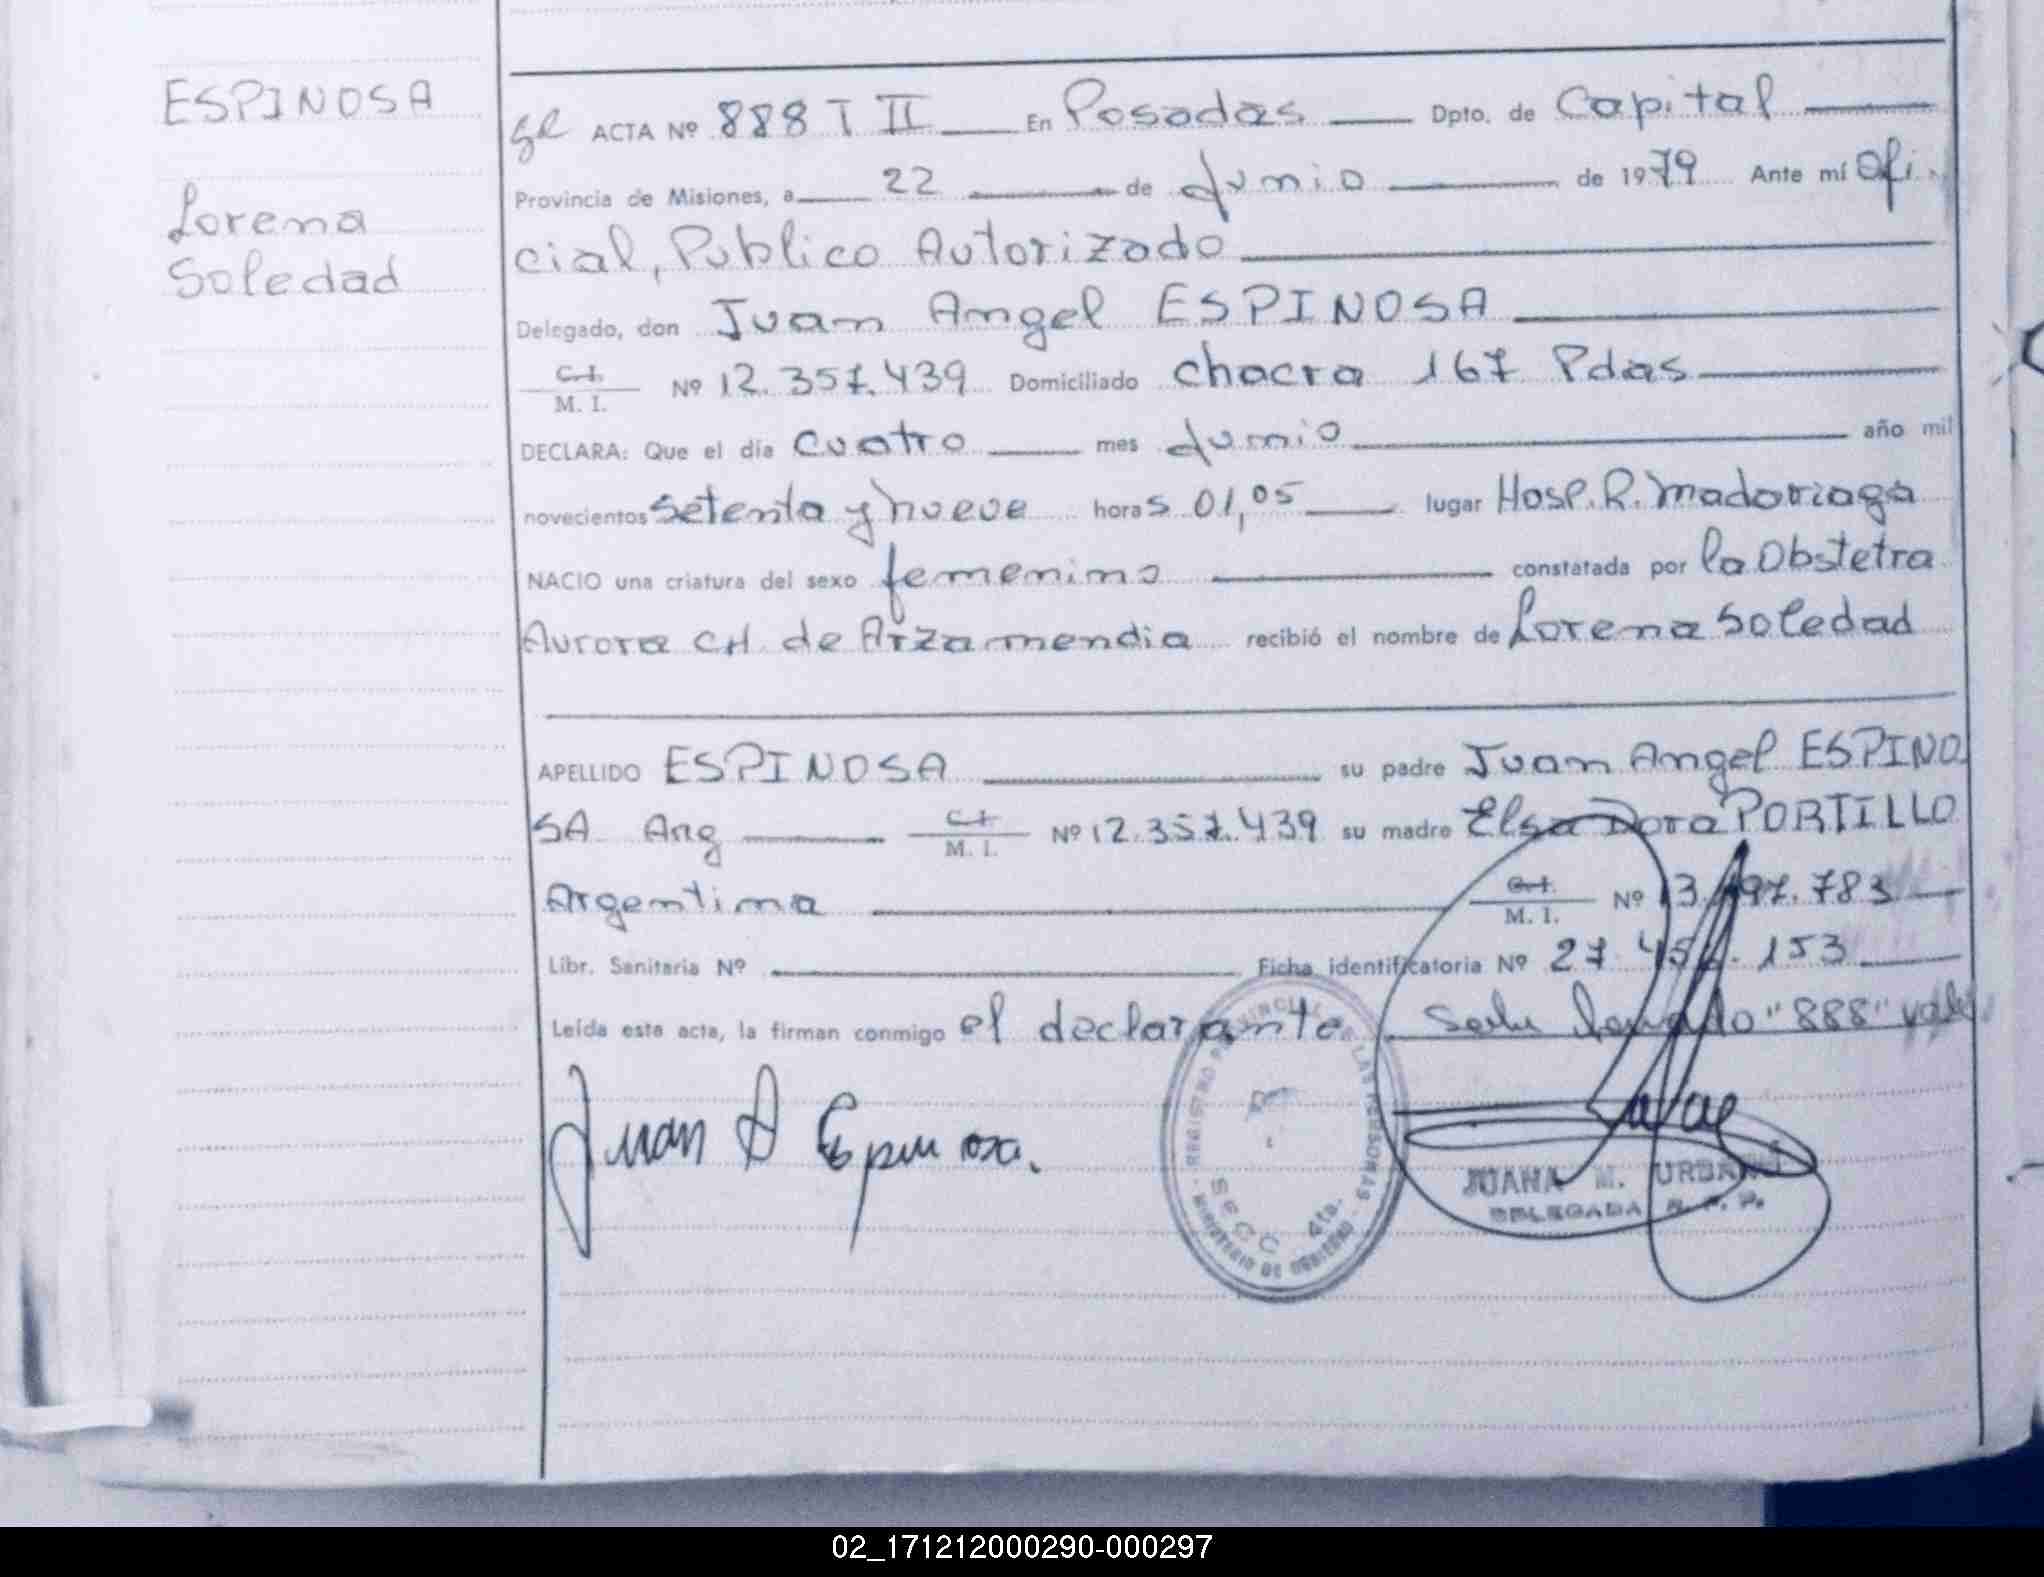 ESPINOSA
Lorena
Soledad
ACTA Nº 888 T II En Posadas Dpto. de Capital
Provincia de Misiones, a 22 de Junio de 1979 Ante mí Ofi-
cial, Publico Autorizado
Delegado, don Juan Angel ESPINOSA
C.I.
M. I. Nº 12.357.439 Domiciliado chacra 167 Pdas
DECLARA: Que el día cuatro mes Junio año mil
novecientos setenta y nueve horas 01,05 lugar Hosp. R. Madariaga
NACIO una criatura del sexo femenino constatada por la Obstetra
Aurora CH. de Arzamendia recibió el nombre de Lorena Soledad
APELLIDO ESPINOSA su padre Juan Angel ESPINO
SA Arg C.I.
M. I. Nº 12.357.439 su madre Elsa Dora PORTILLO
Argentina C.I.
M. I. Nº
Libr. Sanitaria Nº Ficha identificatoria Nº
Leída esta acta, la firman conmigo el declarante "888" vale
Juan A Espinosa.
REGISTRO PROVINCIAL DE LAS PERSONAS
SECC 4ta.
MINISTERIO DE GOBIERNO
JUANA M.
DELEGADA R. P. P.
02_171212000290-000297